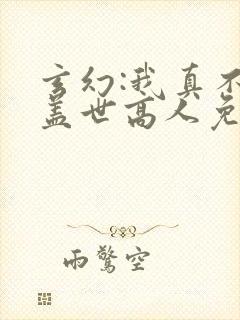 玄幻:我真不
盖世高人免
雨驚空